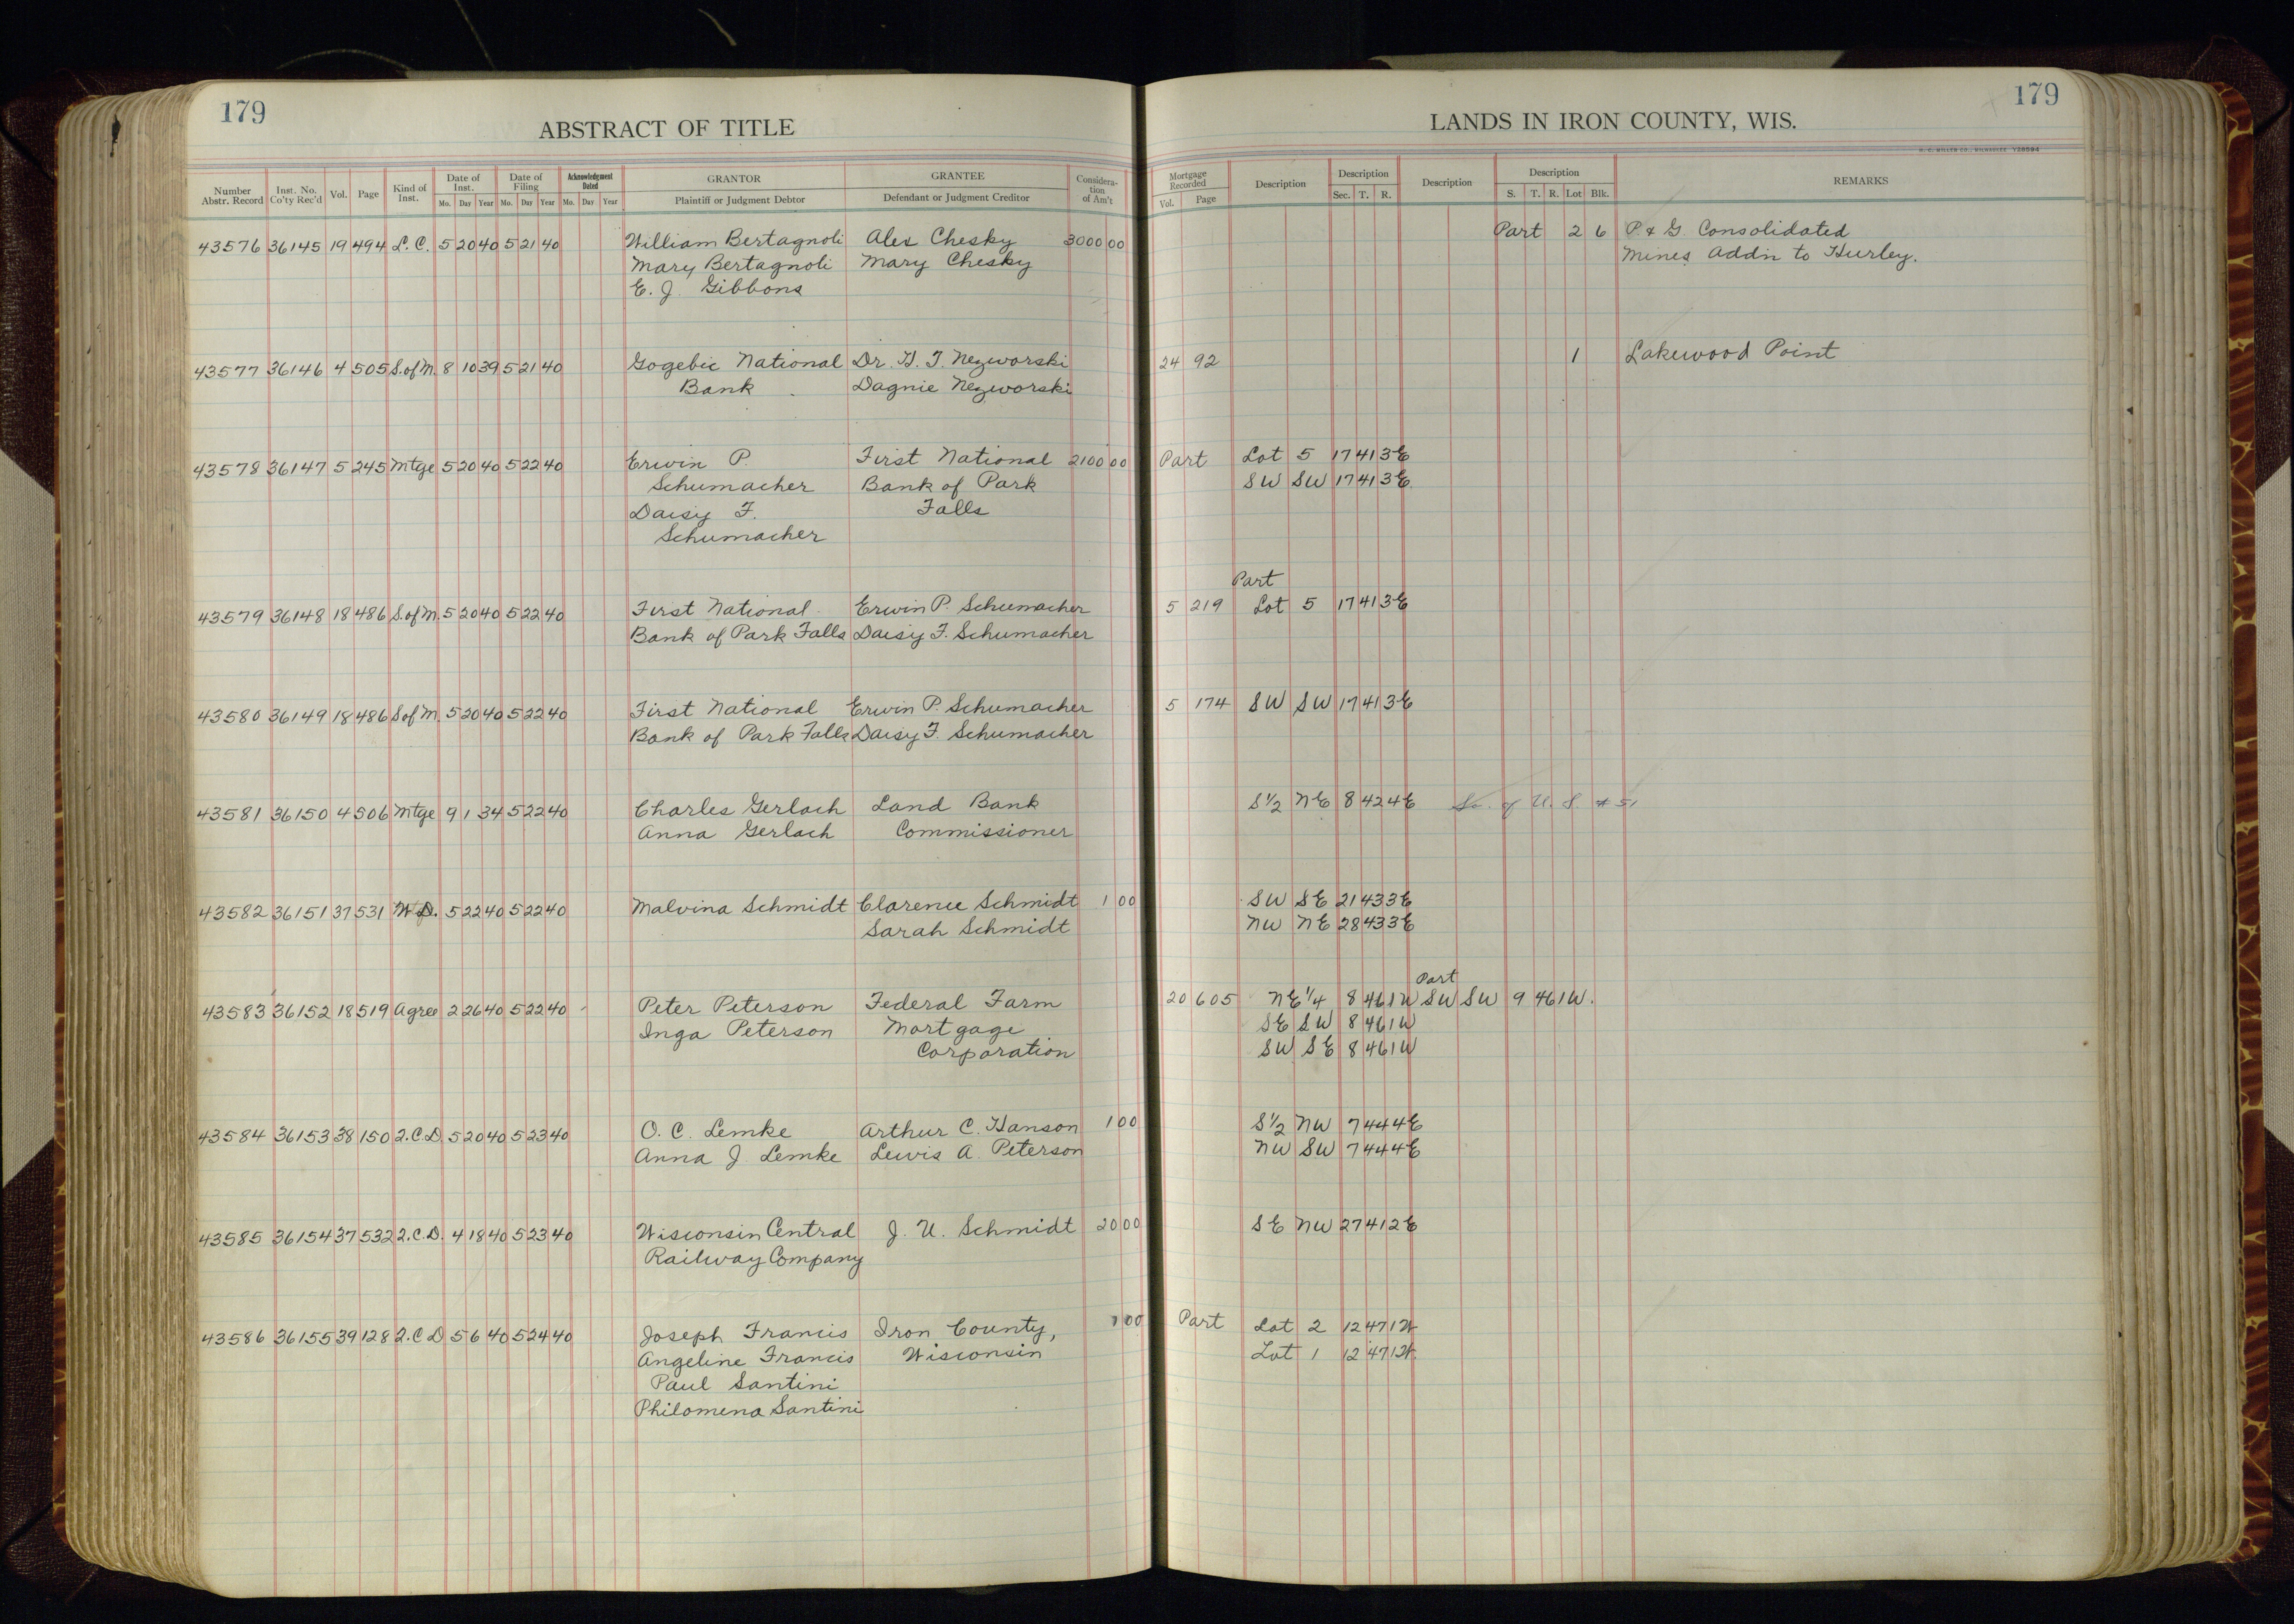 179
ABSTRACT OF TITLE
Number Abstr. Record Inst. No. Co'ty Rec'd Vol. Page Kind of Inst. Date of Inst. Mo. Day Year Date of Filing Mo. Day Year Acknowledgment Dated Mo. Day Year GRANTOR Plaintiff or Judgment Debtor GRANTEE Defendant or Judgment Creditor Considera-tion of Am't
43576 36145 19 494 L. C. 5 20 40 5 21 40 William Bertagnoli Alex Chesky 3000 00
Mary Bertagnoli Mary Chesky
E. J. Gibbons
43577 36146 4 505 S. of M. 8 10 39 5 21 40 Gogebic National Dr. H. F. Nezworski
Bank Dagnie Nezworski
43578 36147 5 245 Mtge 5 20 40 5 22 40 Erwin P. First National 2100 00
Schumacher Bank of Park
Daisy F. Falls
Schumacher
43579 36148 18 486 S. of M. 5 20 40 5 22 40 First National Erwin P. Schumacher
Bank of Park Falls Daisy F. Schumacher
43580 36149 18 486 S of M. 5 20 40 5 22 40 First National Erwin P. Schumacher
Bank of Park Falls Daisy F. Schumacher
43581 36150 4 506 Mtge 9 1 34 5 22 40 Charles Gerlach Land Bank
Anna Gerlach Commissioner
43582 36151 37 531 W. D. 5 22 40 5 22 40 Malvina Schmidt Clarence Schmidt 1 00
Sarah Schmidt
43583 36152 18 519 Agree 2 26 40 5 22 40 Peter Peterson Federal Farm
Inga Peterson Mortgage
Corporation
43584 36153 38 150 2.C.D. 5 20 40 5 23 40 O. C. Lemke Arthur C. Hanson 1 00
Anna J. Lemke Lewis A. Peterson
43585 36154 37 532 2.C.D. 4 18 40 5 23 40 Wisconsin Central J. U. Schmidt 20 00
Railway Company
43586 36155 39 128 2.C D 5 6 40 5 24 40 Joseph Francis Iron County, 1 00
Angeline Francis Wisconsin
Paul Santini
Philomena Santini
179
LANDS IN IRON COUNTY, WIS.
H. C. MILLER CO., MILWAUKEE Y28594
Mortgage Recorded Vol. Page Description Description Sec. T. R. Description Description S. T. R. Lot Blk. REMARKS
Part 2 6 P. & G Consolidated
Mines Addn to Hurley.
24 92 1 Lakewood Point
Part Lot 5 17 41 3E
SW SW 17 41 3E
Part
5 219 Lot 5 17 41 3E
5 174 SW SW 17 41 3E
S½ NE 8 42 4E So. of U. S. #51
SW SE 21 43 3E
NW NE 28 43 3E
Part
20 605 NE¼ 8 46 1W SW SW 9 46 1W.
SE SW 8 46 1W
SW SE 8 46 1W
S½ NW 7 44 4E
NW SW 7 44 4E
SE NW 27 41 2E
Part Lot 2 12 47 1W
Lot 1 12 47 1W.